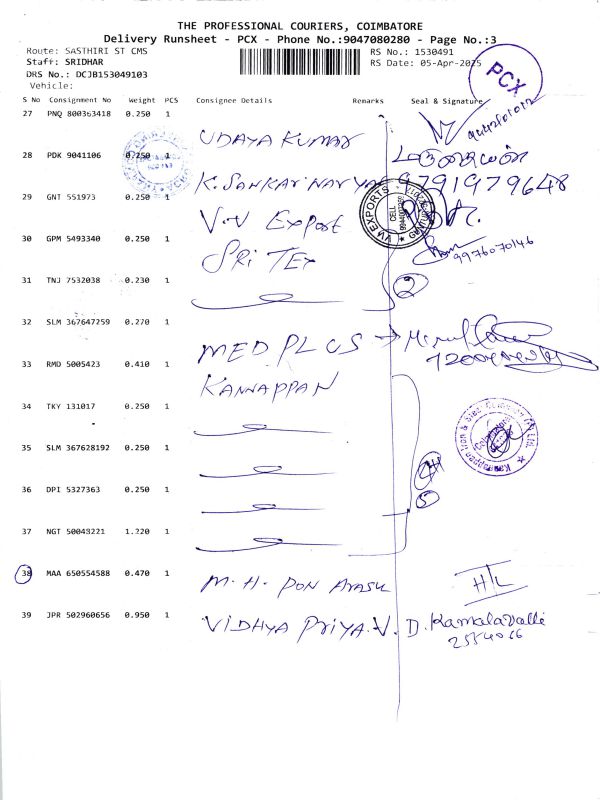 THE PROFESSIONAL COURIERS, COIMBATORE
Delivery Runsheet - PCX - Phone No.:9047080280 - Page No.:3
Route: SASTHIRI ST CMS
RS No.: 1530491
Staff: SRIDHAR
RS Date: 05-Apr-2025
DRS No.: DCJB153049103
Vehicle:
PCX
S No Consignment No Weight PCS Consignee Details Remarks Seal & Signature
27 PNQ 800363418 0.250 1
UDAYA KUMAR
28 PDK 9041106 0.250 1
K. SANKAR NARYA 9791979648
29 GNT 551973 0.250 1
V.V Export
VN EXPORTS
CELL
30 GPM 5493340 0.250 1
SRI TEX
9976070146
31 TNJ 7532038 0.230 1
2
32 SLM 367647259 0.270 1
MED PLUS
33 RMD 5005423 0.410 1
KANNAPPAN
34 TKY 131017 0.250 1
Kannappan Iron & Steel Company (P) Ltd.
35 SLM 367628192 0.250 1
36 DPI 5327363 0.250 1
5
37 NGT 50043221 1.220 1
38 MAA 650554588 0.470 1
M.H. PON ARASU H/L
39 JPR 502960656 0.950 1
VIDHYA PRIYA.V. D. Kamalavalli
2554066